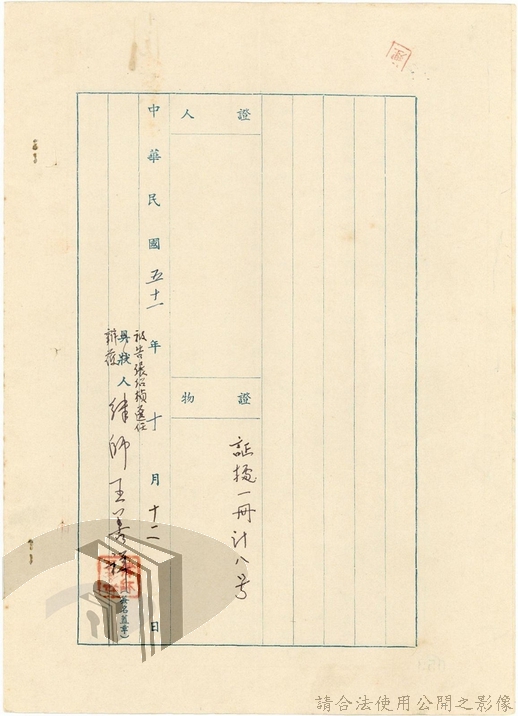 證人
證物
証據一冊計八号
中華民國五十一年十月十二日
被告張紹楨選任
辯護
具狀人律師王善祥
（簽名蓋章）
請合法使用公開之影像